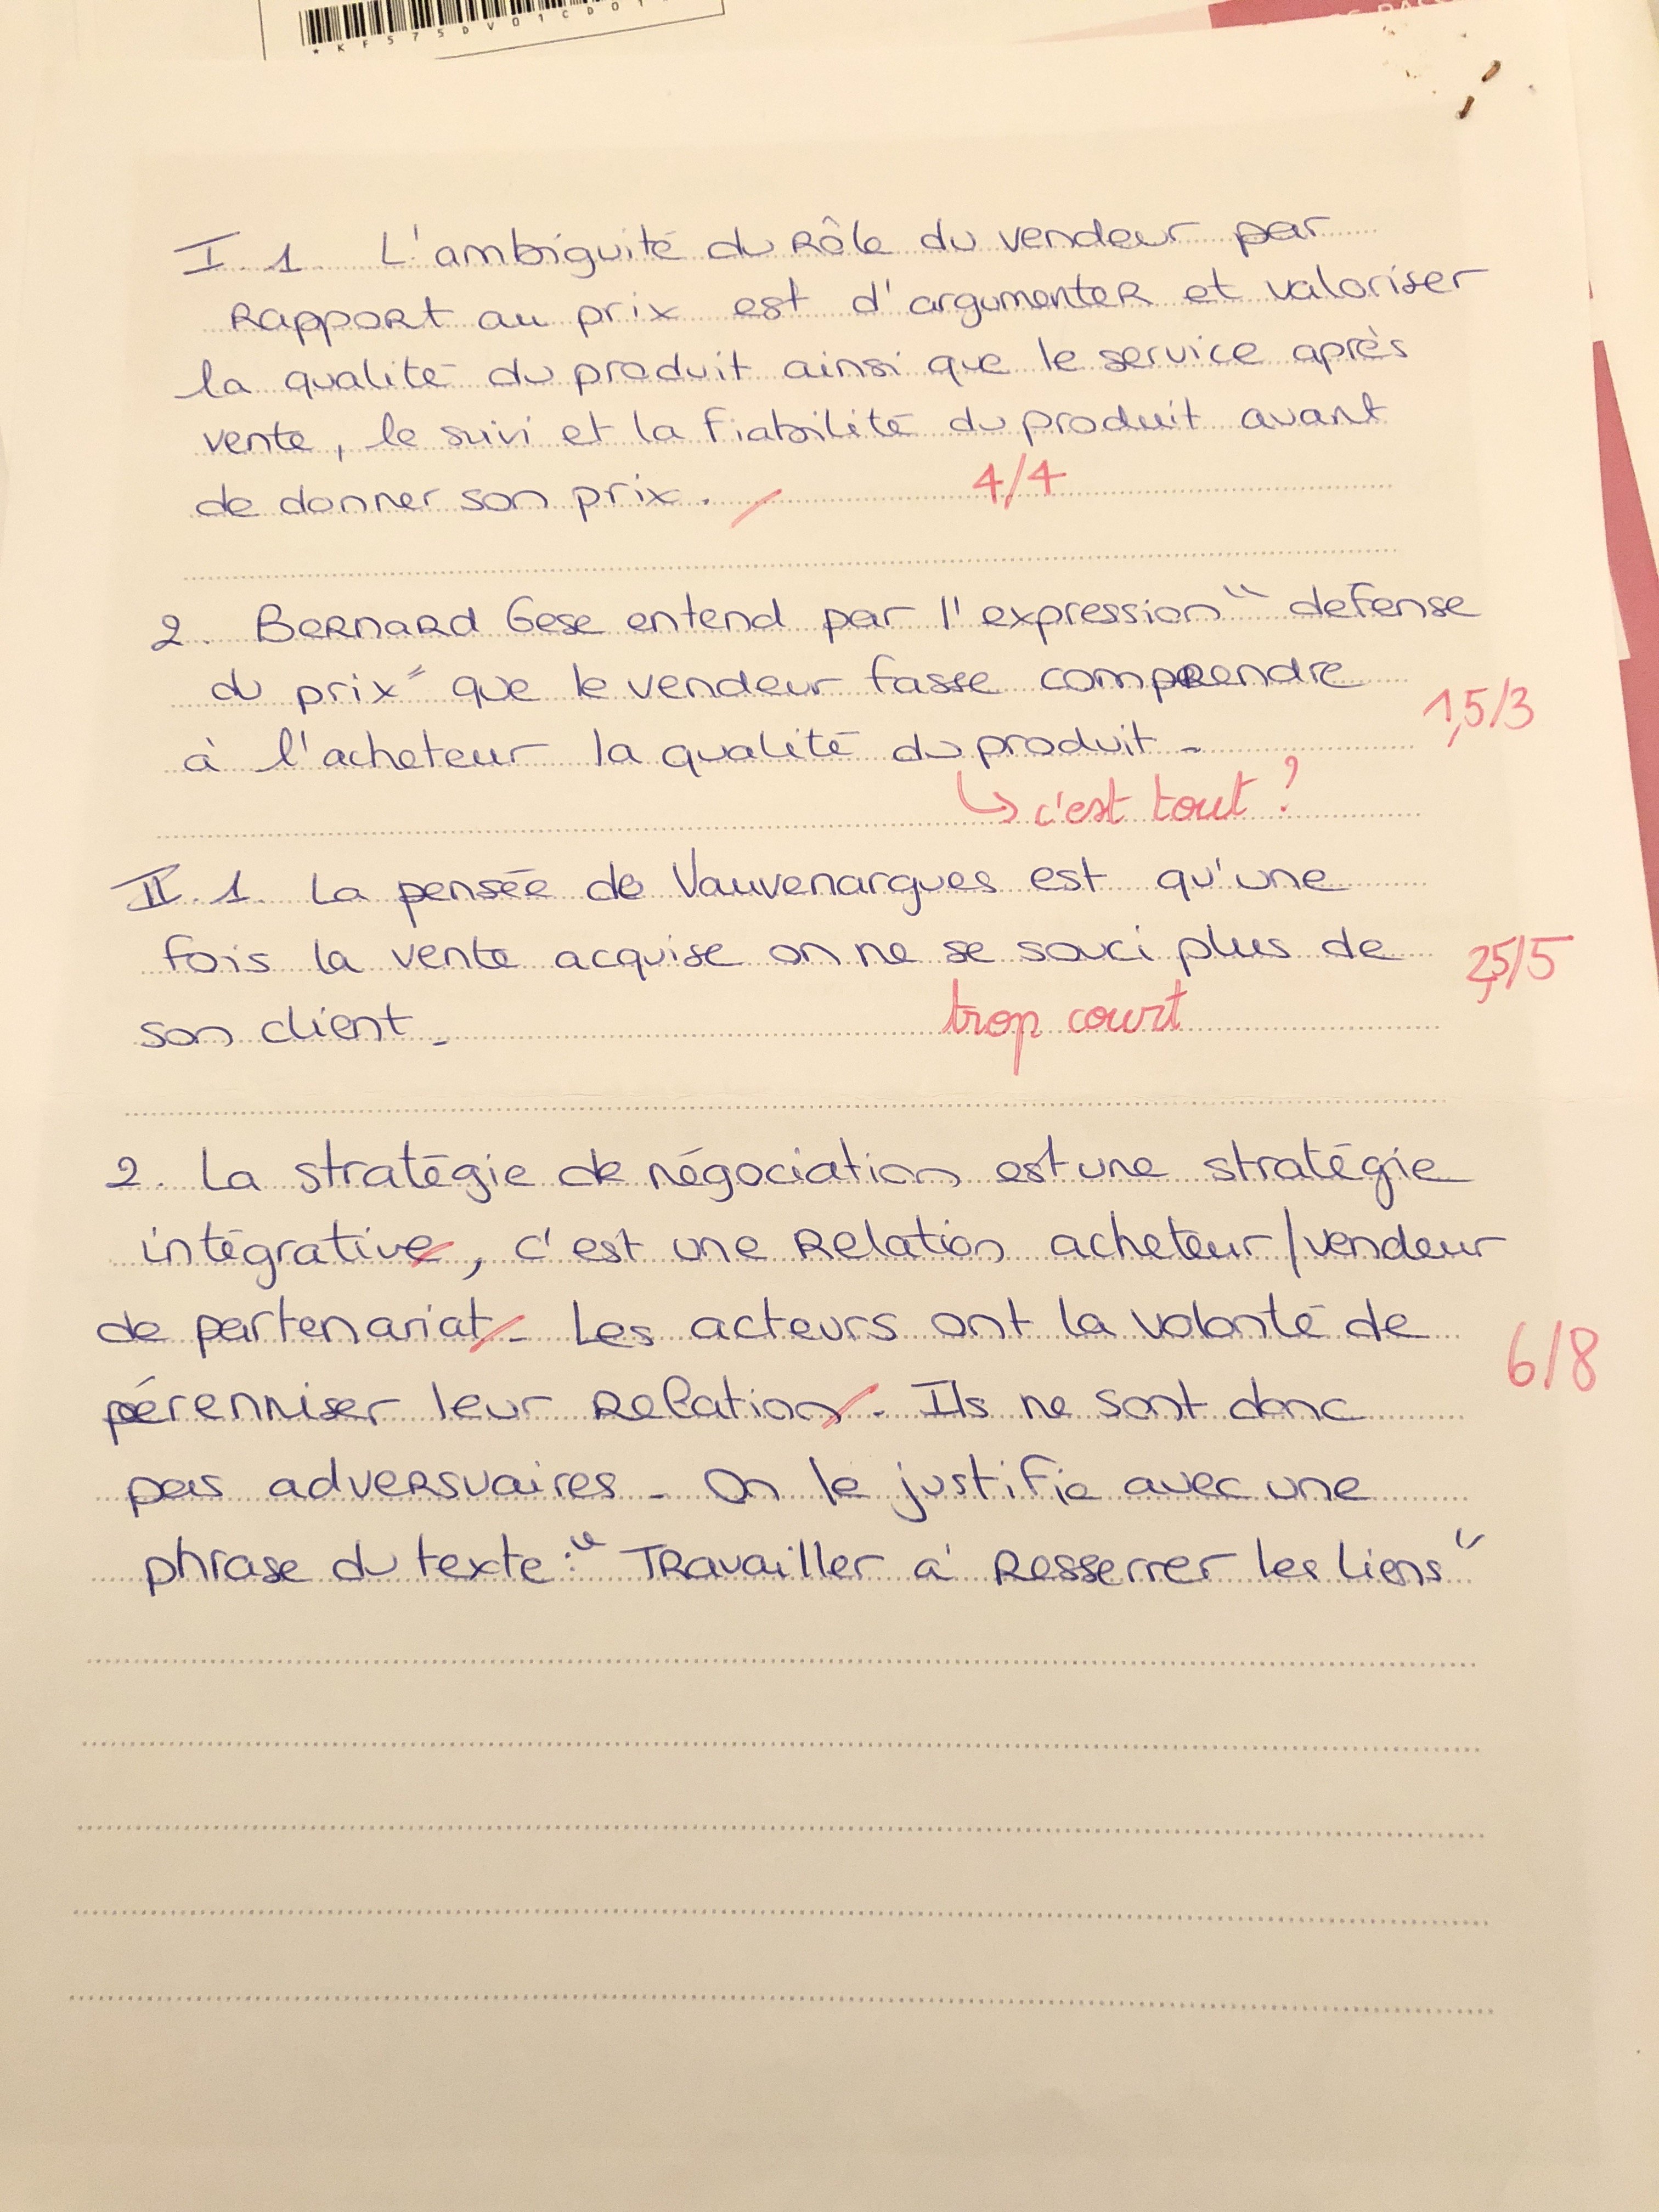 * K F 5 7 5 D V 0 1 C D 0 1
I. 1. L'ambiguité du Rôle du vendeur par
Rapport au prix est d'argumenter et valoriser
la qualité du produit ainsi que le service après
vente, le suivi et la fiabilité du produit avant
de donner son prix.
4/4
2. Bernard Gese entend par l'expression "defense
du prix" que le vendeur fasse comprendre
à l'acheteur la qualité du produit.
1,5/3
↳ c'est tout ?
II. 1. La pensée de Vauvenargues est qu'une
fois la vente acquise on ne se souci plus de
son client.
2,5/5
trop court
2. La stratégie de négociation est une stratégie
intégrative, c'est une Relation acheteur/vendeur
de partenariat. Les acteurs ont la volonté de
pérenniser leur Relation. Ils ne sont donc
pas adversuaires. On le justifie avec une
6/8
phrase du texte : "Travailler à Resserrer les liens"